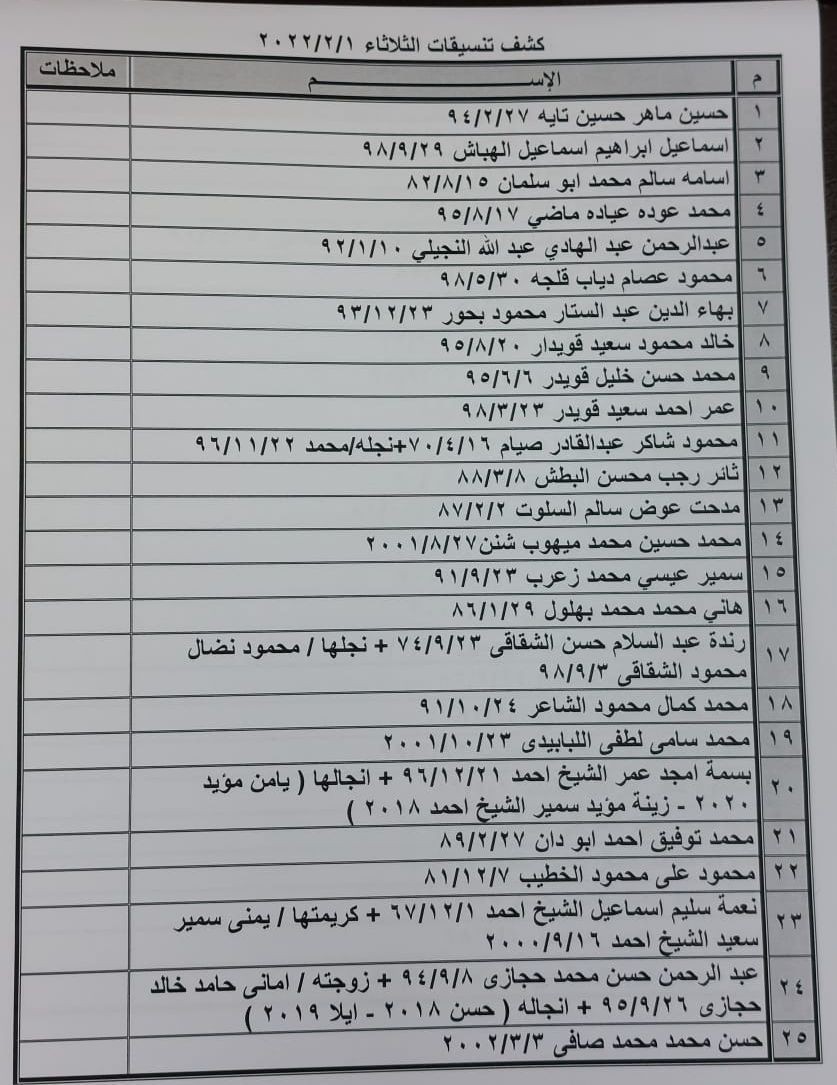 كشف تنسيقات الثلاثاء ٢٠٢٢/٢/١
م الإســـــــــم ملاحظات
١ حسين ماهر حسين تايه ٩٤/٢/٢٧
٢ اسماعيل ابراهيم اسماعيل الهباش ٩٨/٩/٢٩
٣ اسامه سالم محمد ابو سلمان ٨٢/٨/١٥
٤ محمد عوده عياده ماضي ٩٥/٨/١٧
٥ عبدالرحمن عبد الهادي عبد الله النجيلي ٩٢/١/١٠
٦ محمود عصام دياب قلجه ٩٨/٥/٣٠
٧ بهاء الدين عبد الستار محمود بحور ٩٣/١٢/٢٣
٨ خالد محمود سعيد قويدار ٩٥/٨/٢٠
٩ محمد حسن خليل قويدر ٩٥/٦/٦
١٠ عمر احمد سعيد قويدر ٩٨/٣/٢٣
١١ محمود شاكر عبدالقادر صيام ٧٠/٤/١٦+نجله/محمد ٩٦/١١/٢٢
١٢ ثائر رجب محسن البطش ٨٨/٣/٨
١٣ مدحت عوض سالم السلوت ٨٧/٢/٢
١٤ محمد حسين محمد ميهوب شنن٢٠٠١/٨/٢٧
١٥ سمير عيسي محمد زعرب ٩١/٩/٢٣
١٦ هاني محمد محمد بهلول ٨٦/١/٢٩
١٧ رندة عبد السلام حسن الشقاقى ٧٤/٩/٢٣ + نجلها / محمود نضال
محمود الشقاقى ٩٨/٩/٣
١٨ محمد كمال محمود الشاعر ٩١/١٠/٢٤
١٩ محمد سامى لطفى اللبابيدى ٢٠٠١/١٠/٢٣
٢٠ بسمة امجد عمر الشيخ احمد ٩٦/١٢/٢١ + انجالها ( يامن مؤيد
٢٠٢٠ - زينة مؤيد سمير الشيخ احمد ٢٠١٨ )
٢١ محمد توفيق احمد ابو دان ٨٩/٢/٢٧
٢٢ محمود على محمود الخطيب ٨١/١٢/٧
٢٣ نعمة سليم اسماعيل الشيخ احمد ٦٧/١٢/١ + كريمتها / يمنى سمير
سعيد الشيخ احمد ٢٠٠٠/٩/١٦
٢٤ عبد الرحمن حسن محمد حجازى ٩٤/٩/٨ + زوجته / امانى حامد خالد
حجازى ٩٥/٩/٢٦ + انجاله ( حسن ٢٠١٨ - ايلا ٢٠١٩ )
٢٥ حسن محمد محمد صافى ٢٠٠٢/٣/٣